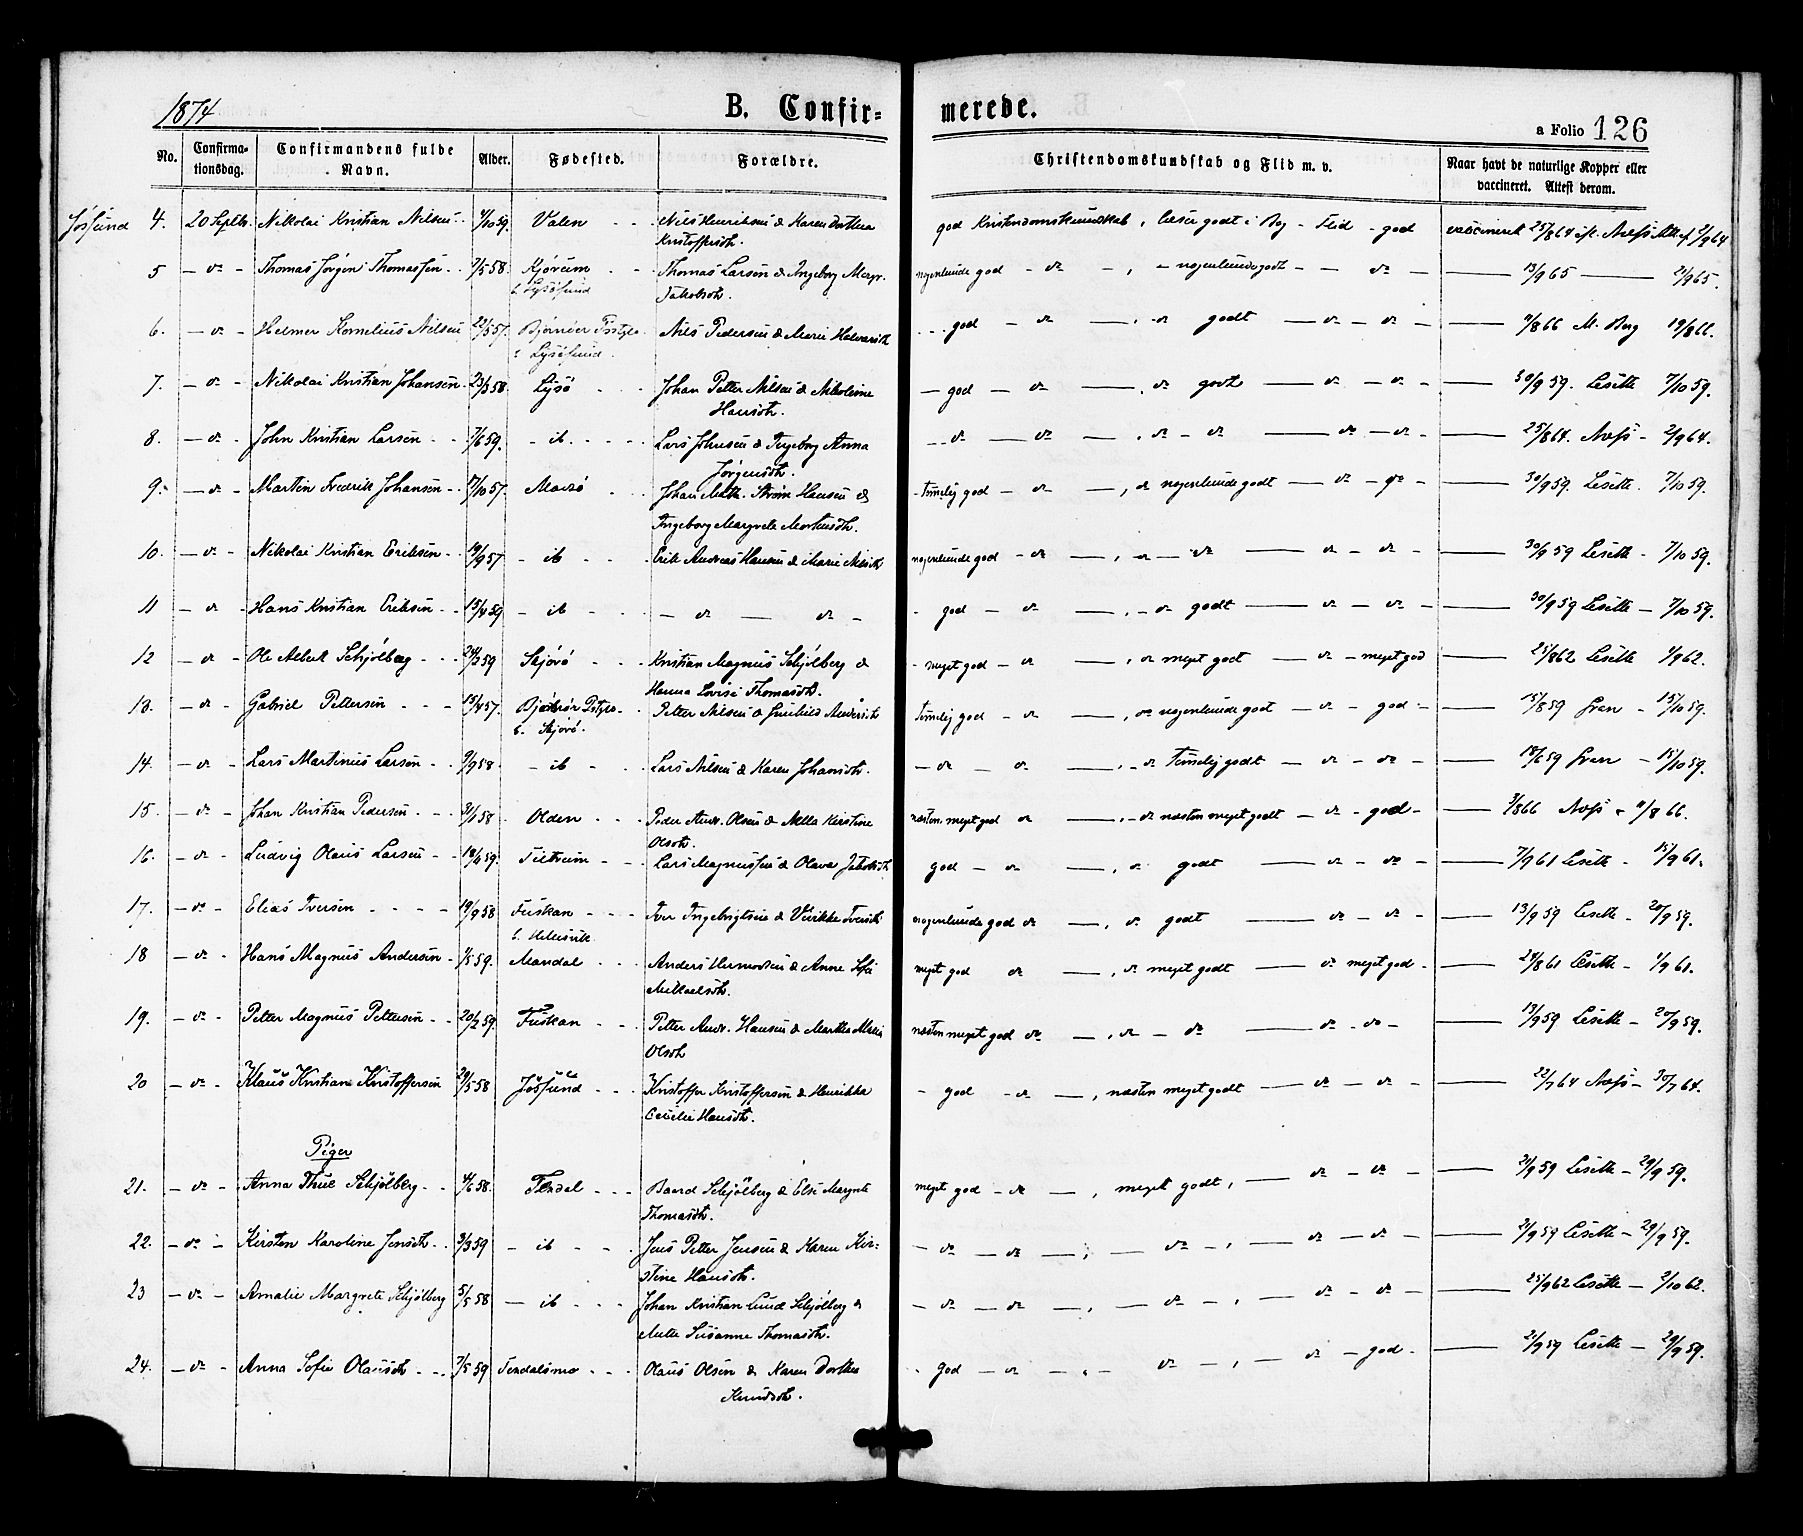 1874 B. Confir- merede. a Folio 126
No. Confirma- tionsdag. Confirmandens fulde Navn. Alder. Fødested. Forældre. Christendomskundskab og Flid m. v. Naar havt de naturlige Kopper eller vaccineret. Attest derom.
Jøssund 4. 20 Septb. Nikolai Kristian Nilsen 59. Valen Niels Henriksen & Karen Dorthea god Kristendomskundskab, læser godt i Bog - Flid - god vaccineret 25/8 64 Næss 2/9 64
Kristoffersdt.
5 - do - Thomas Jørgen Thomassen 7/5 58. Kjørum Thomas Larsen & Ingeborg Margr. nogenlunde god - do - , - nogenlunde godt - - do - 13/9 65 21/9 65.
b. Lysøsund Jakobsdt.
6. - do - Helmer Kornelius Nilsen 22/5 57. Bjørnør Nils Pedersen & Marie god - do - , do godt - do - do - 9/8 66 M. Berg 19/8 66.
Lysøsund.
7. - do - Nikolai Kristian Johansen 23/3 58 Lysø Johan Petter Nilsen & Nikoline - god - do - , do godt - do - do - 30/9 59. Lesette 7/10 59.
Hansdt.
8. - do - John Kristian Larsen 7/6 59. - ib. Lars Johnsen & Ingeborg Anna - do - do - , do - do - do - do - 25/8 64. Næss - 2/9 64.
Jørgensdt.
9. - do - Martin Fredrik Johansen 57. Johan Strøm Hansen & temelig god - do - , do nogenlunde godt - do - do - 30/9 59. Lesette. 7/10 59.
Ingeborg Margrete Mortensdt.
10. - do - Nikolai Kristian Eriksen 19/9 57 - ib Erik Andreas Hansen & Marie Nilsdt. nogenlunde god - do - , do - do - do - do - 30/9 59 Lesette - 7/10 59.
11 - do - Hans Kristian Eriksen 15/4 59 - ib - do - do - - god - do - , - do godt - do - do - 30/9 59 Lesette - 7/10 59.
12 - do - Ole Albert Schjølberg 59 Skjøvø Kristian Magnus Schjølberg & - meget god - do - , do meget godt - do - meget god 25/8 62 Lesette 1/9 62.
Hanna Lovise Thomasdt.
13. - do - Gabriel Pettersen 15/4 57. Bjørnør Petter Nilsen & Gunhild Andersdt. temelig god - do - , do nogenlunde godt - do - god - 15/8 59 Gran - 15/10 59.
b. Skjøvø.
14. - do - Lars Martinus Larsen 9/9 58 - ib - Lars Nilsen & Karen Johansdt. - do - do - , - do Temelig godt - do - do - 59 Gran - 15/10 59.
15. - do - Johan Kristian Pedersen 58. Olden Peder Andr. Olsen & Kirstine næsten meget god do - , - do næsten meget godt - do - god - 3/8 66 Næss - 11/8 66.
Olsdt.
16. - do - Ludvig Olaus Larsen 59. Lars Magnussen & Olava Jakobsdt. god - do - , do godt - do - do - 7/9 61 Lesette - 15/9 61.
17. - do - Elias Iversen 19/9 58 Fuskan Iver Ingebrigtsen & Iversdt. nogenlunde god do - , do godt - do - do - 13/9 59 Lesette - 20/9 59.
b.
18 - do - Hans Magnus Andersen 1/5 59. Mandal Anders & Anne Sofie meget god do - , do meget godt - do meget god - 24/8 61 Lesette - 1/9 61.
Mikkaelsdt.
19. - do - Petter Magnus Pettersen 20/2 59. Fuskan Petter Andr. Hansen & Martha Maria næsten meget god do - , do - do - do - do - 13/9 59 Lesette - 20/9 59.
Olsdt
20 - do - Klaus Kristian Kristoffersen 29/5 58 Jøssund Kristoffer Kristoffersen & Henrikka - god - do - , næsten meget godt - do - do - 22/7 64 Næss - 30/7 64.
Cecilie Hansdt.
Piger
21. - do - Anna Thue Schjølberg 4/6 58. Terdal Baard Schjølberg & Else Margrete meget god - do - , meget godt, - do - do - 21/9 59 Lesette - 29/9 59.
Thomasdt.
22. - do - Kirsten Karoline Jensdt. 9/3 59 - ib - Jens Petter Jensen & Karen Kir- - do - do - , do - , - do - do - 21/9 59 Lesette - 29/9 59.
stine Hansdt.
23 - do - Amalie Margrete Schjølberg 5/5 58 - ib - Johan Kristian Lund Schjølberg & - do - do - , - do - , - do - do - 25/9 62 Lesette - 2/10 62.
Mette Susanne Thomasdt.
24. - do - Anna Sofie Olausdt. 7/5 59 Terdalsmo Olaus Olsen & Karen Dorthea - god - do - , - do - , - do - god - 21/9 59 Lesette - 29/9 59.
Knudsdt.